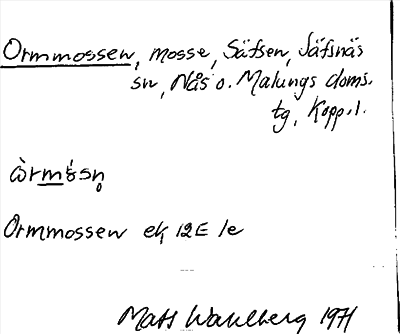 Ormmossen, mosse, Säfsen, Säfsnäs
sn, Nås o. Malungs doms.
tg, Kopp. l.
Ormmossen ek 12E 1e
Mats Wahlberg 1971